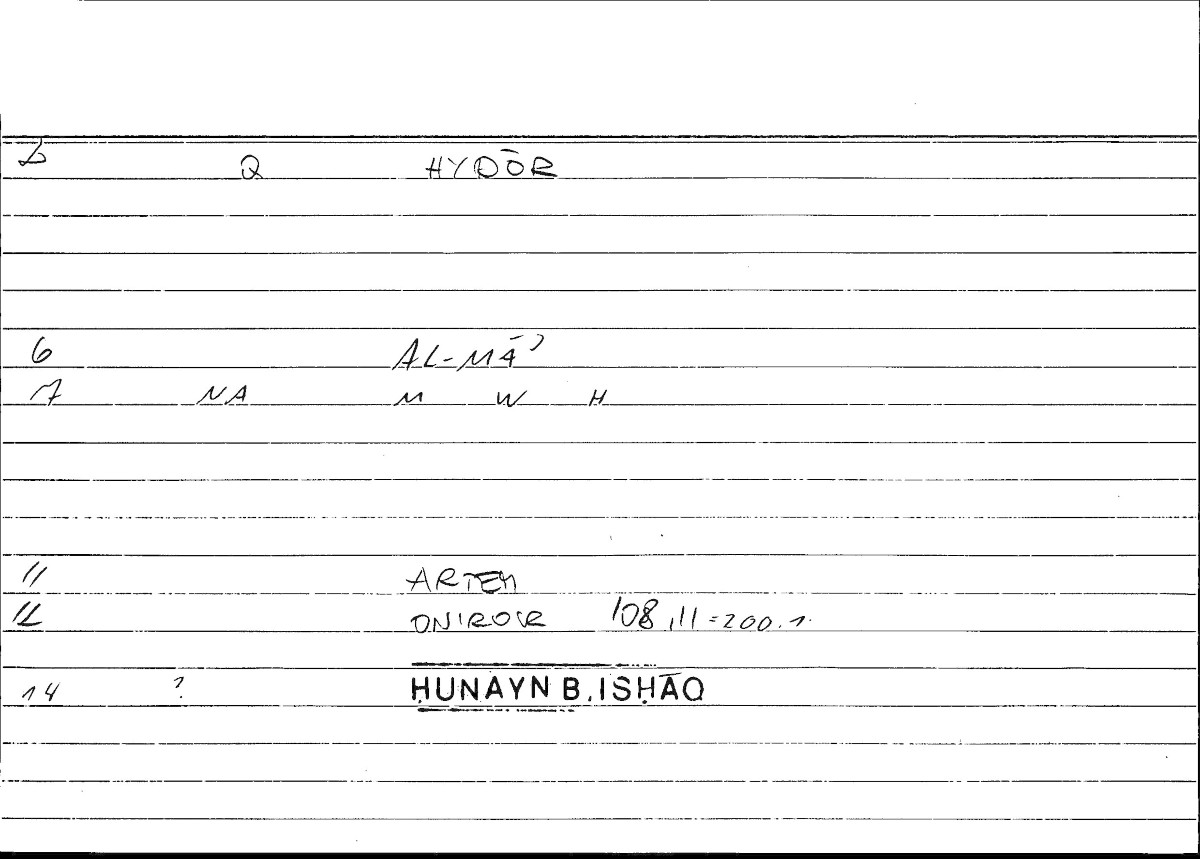 2 Q HYDŌR
6 AL-MĀʾ
7 NA M W H
11 ARTEM
12 ONIROCR 108,11=200.1
14 ? ḤUNAYN B. ISḤĀQ